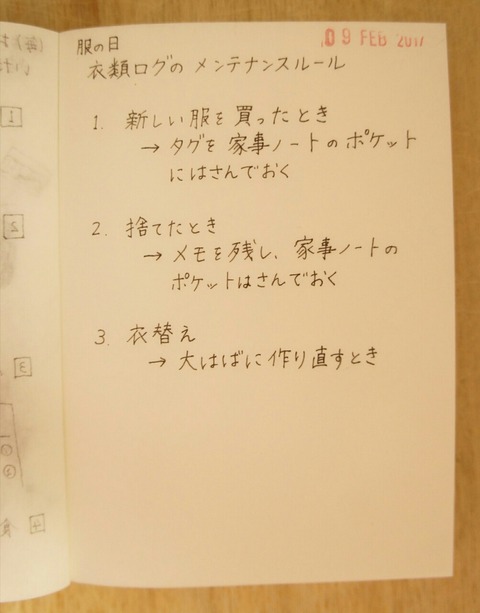 09 FEB 2017
服の日
衣類ログの メンテナンスルール
1. 新しい服を買ったとき
→ タグを 家事ノートのポケット
にはさんでおく
2. 捨てたとき
→ メモを残し、家事ノートの
ポケットはさんでおく
3. 衣替え
→ 大はばに作り直すとき